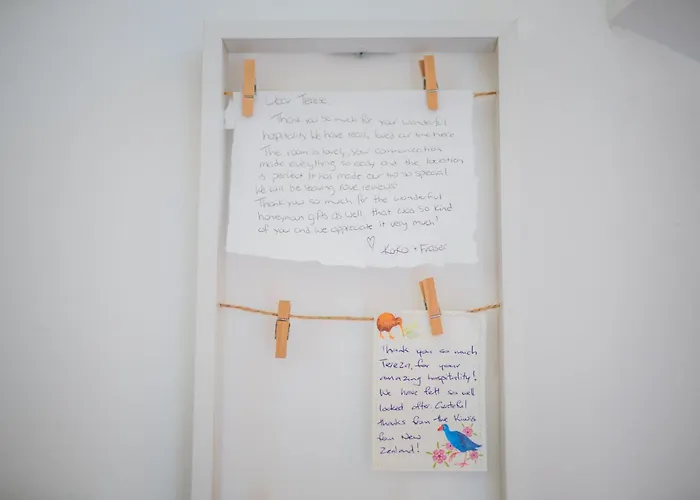 Dear Tereza,
Thank you so much for your wonderful
hospitality. We have really loved our time here.
The room is lovely, your communication
made everything so easy and the location
is perfect. It has made our trip so special.
We will be leaving rave reviews!
Thank you so much for the wonderful
honeymoon gifts as well, that was so kind
of you and we appreciate it very much!
♡ Koko + Fraser
Thank you so much
Tereza, for your
amazing hospitality!
We have felt so well
looked after. Grateful
thanks from the Kiwis
from New
Zealand!